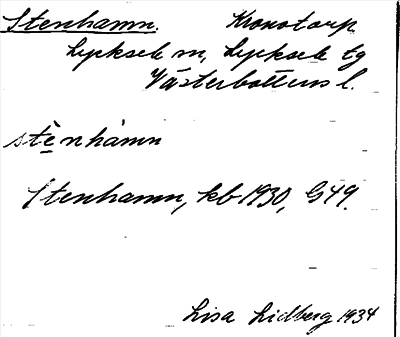 Stenhamn. Kronotorp
Lycksele sn, Lycksele tg
Västerbottens l.
stènhàmn
Stenhamn, kb 1930, G49.
Lisa Lidberg 1934